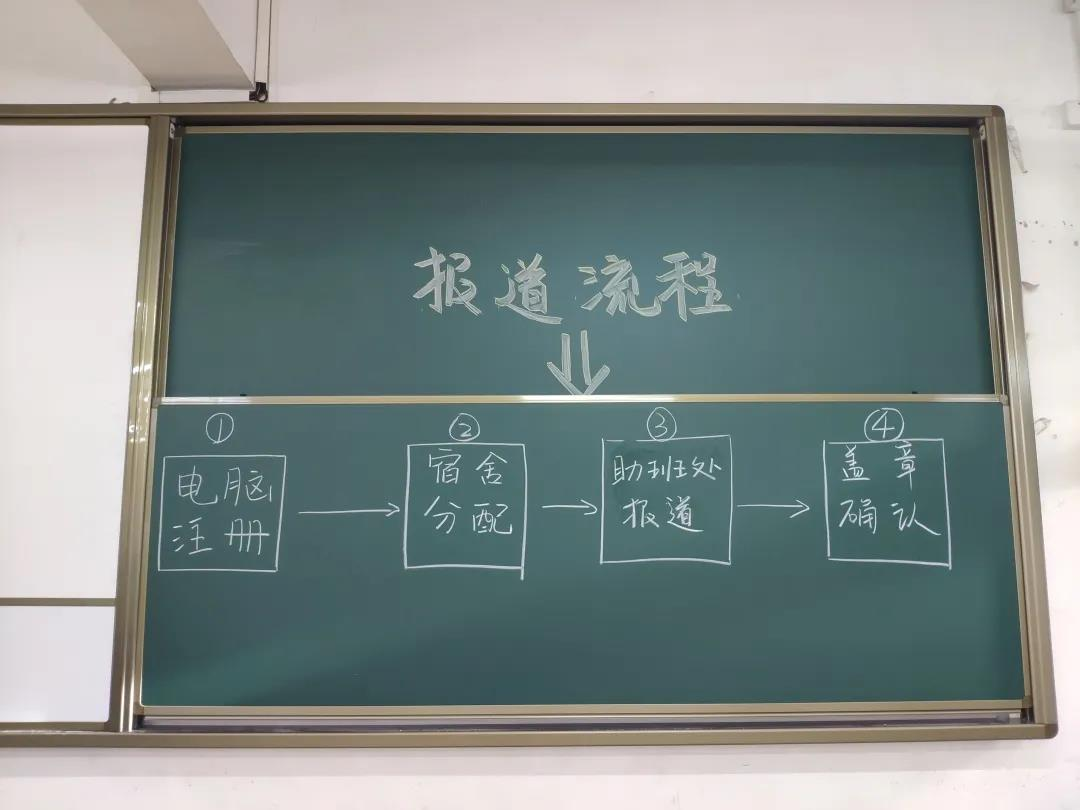 报道流程
①
电脑
注册
②
宿舍
分配
③
助班处
报道
④
盖章
确认